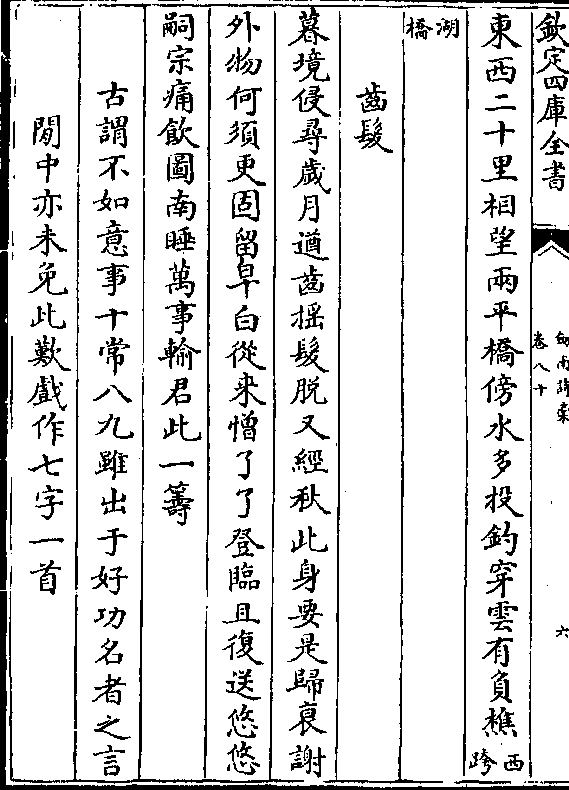 欽定四庫全書
劍南詩稾
卷八十
六
東西二十里相望兩平橋傍水多投釣穿雲有負樵西跨
湖橋
齒髮
暮境侵尋歲月遒齒搖髮脫又經秋此身要是歸衰謝
外物何須更固留皁白從来憎了了登臨且復送悠悠
嗣宗痛飲圖南睡萬事輸君此一籌
古謂不如意事十常八九雖出于好功名者之言
閒中亦未免此歎戲作七字一首